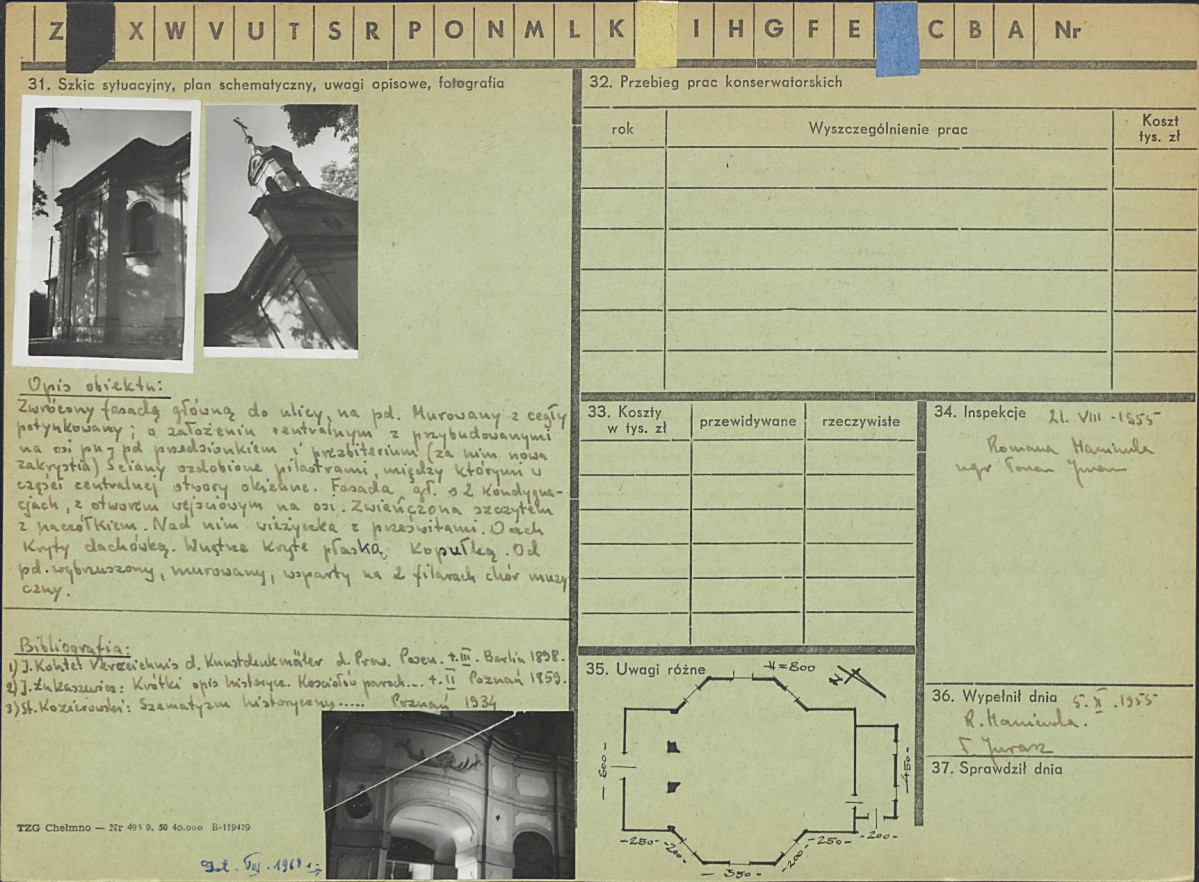 Z X W V U T S R P O N M L K I H G F E C B A Nr
31. Szkic sytuacyjny, plan schematyczny, uwagi opisowe, fotografia
Opis obiektu:
Zwrócony fasadą główną do ulicy, na pd. Murowany z cegły
potynkowany; o założeniu centralnym z przybudowanymi
na osi pn-pd przedsionkiem i prezbiterium (za nim nowa
zakrystia) Ściany ozdobione pilastrami, między którymi w
części centralnej otwory okienne. Fasada gł. o 2 kondygna-
cjach, z otworem wejściowym na osi. Zwieńczona szczytem
z naczółkiem. Nad nim wieżyczka z prześwitami. Dach
kryty dachówką. Wnętrze kryte płaską kopułką. Od
pd. wybrzuszony, murowany, wsparty na 2 filarach chór muzy
czny.
Bibliografia:
1) J. Kohte: Verzeichnis d. Kunstdenkmäler d. Prov. Posen. t. III. Berlin 1898.
2) J. Łukaszewicz: Krótki opis historycz. Kościołów paroch... t. II Poznań 1859.
3) St. Kozierowski: Szematyzm historyczny..... Poznań 1934
TZG Chełmno — Nr 495 9. 50 40.000 B-119479
VIII. 1968
32. Przebieg prac konserwatorskich
rok
Wyszczególnienie prac
Koszt
tys. zł
33. Koszty
w tys. zł
przewidywane
rzeczywiste
34. Inspekcje 21. VIII - 1955
mgr
35. Uwagi różne
H=800
N
-600-
-450-
-250-
-200-
-350-
-200-
-250-
-200-
36. Wypełnił dnia 5. X. 1955
37. Sprawdził dnia